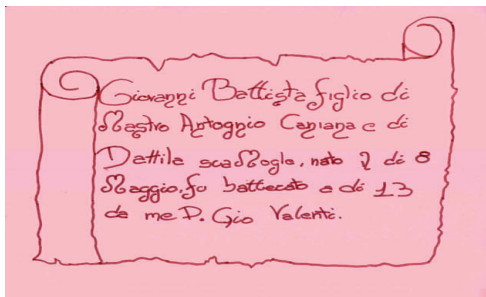 Giovanni Battista figlio di
Mastro Antognio Caniana e di
Dattila sua Mogle, nato di 8
Maggio, fu battecato a di 13
da me P. Gio Valenti.